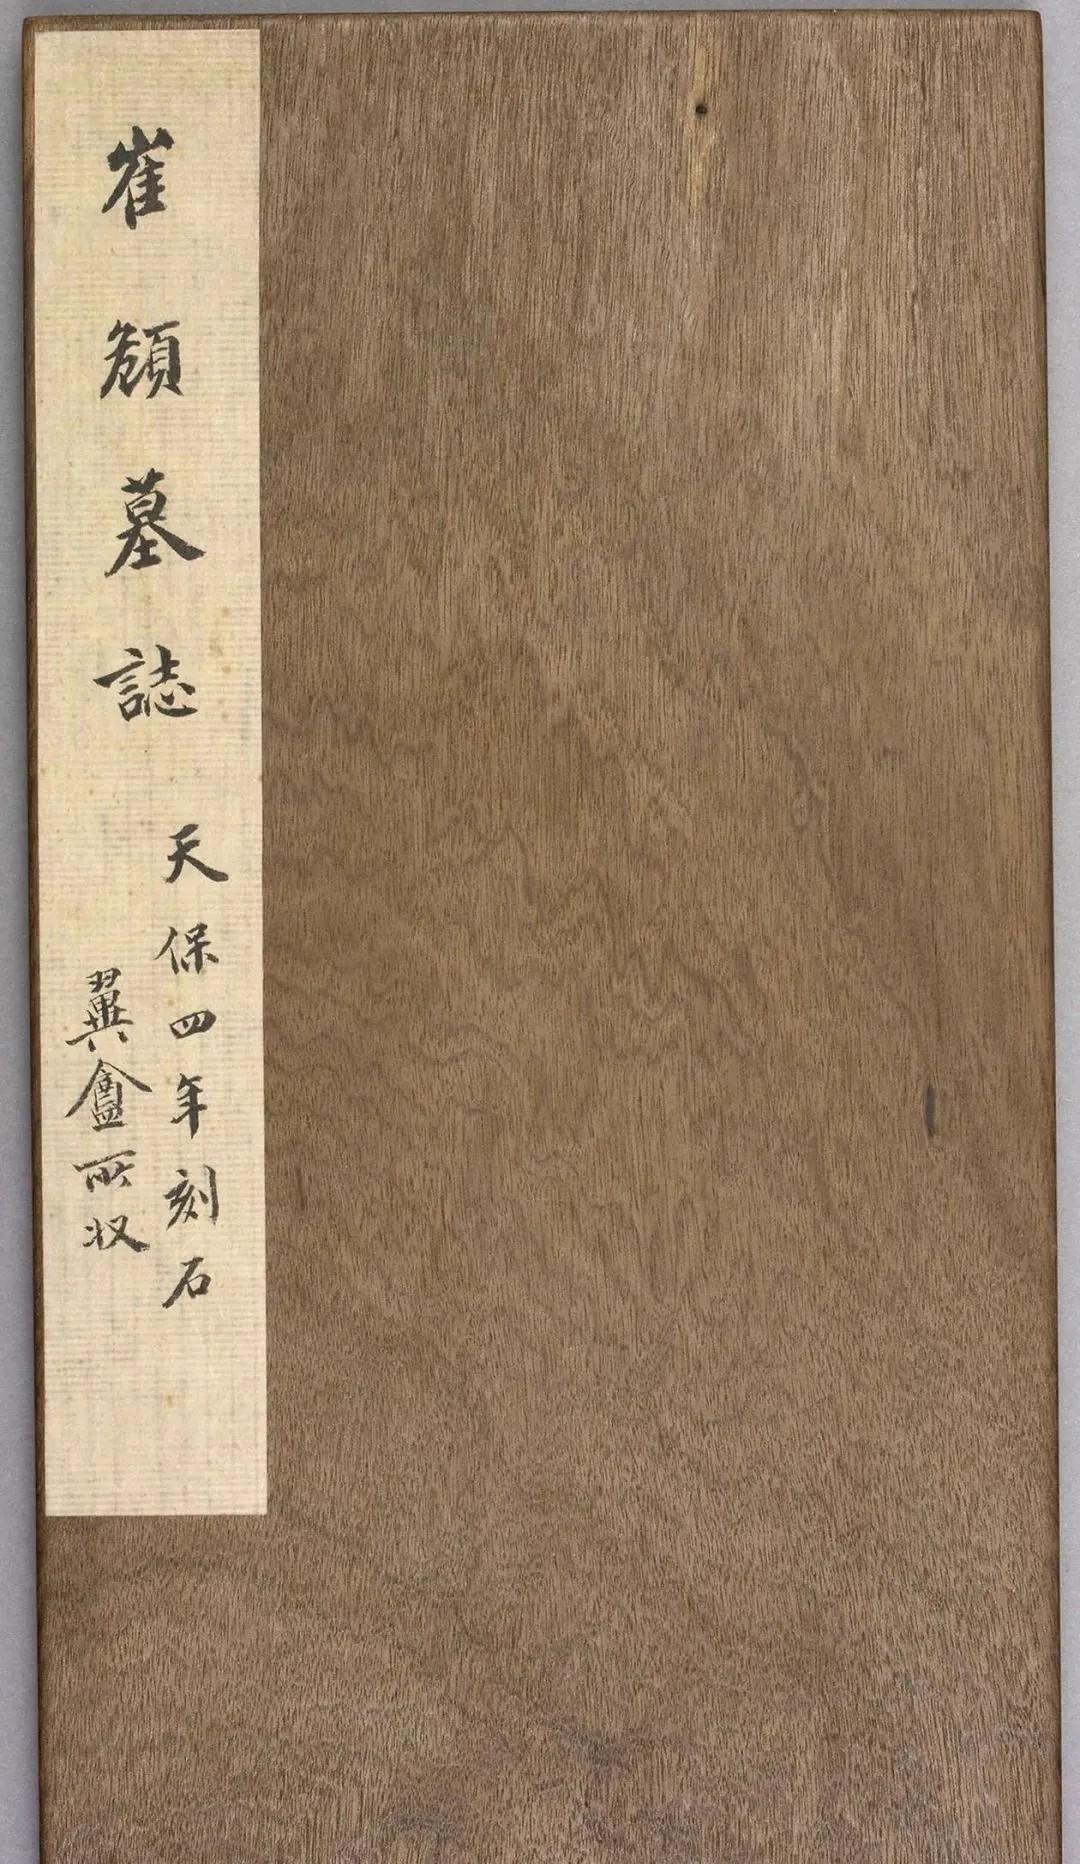 崔頠墓誌
天保四年刻石
翼盦所収